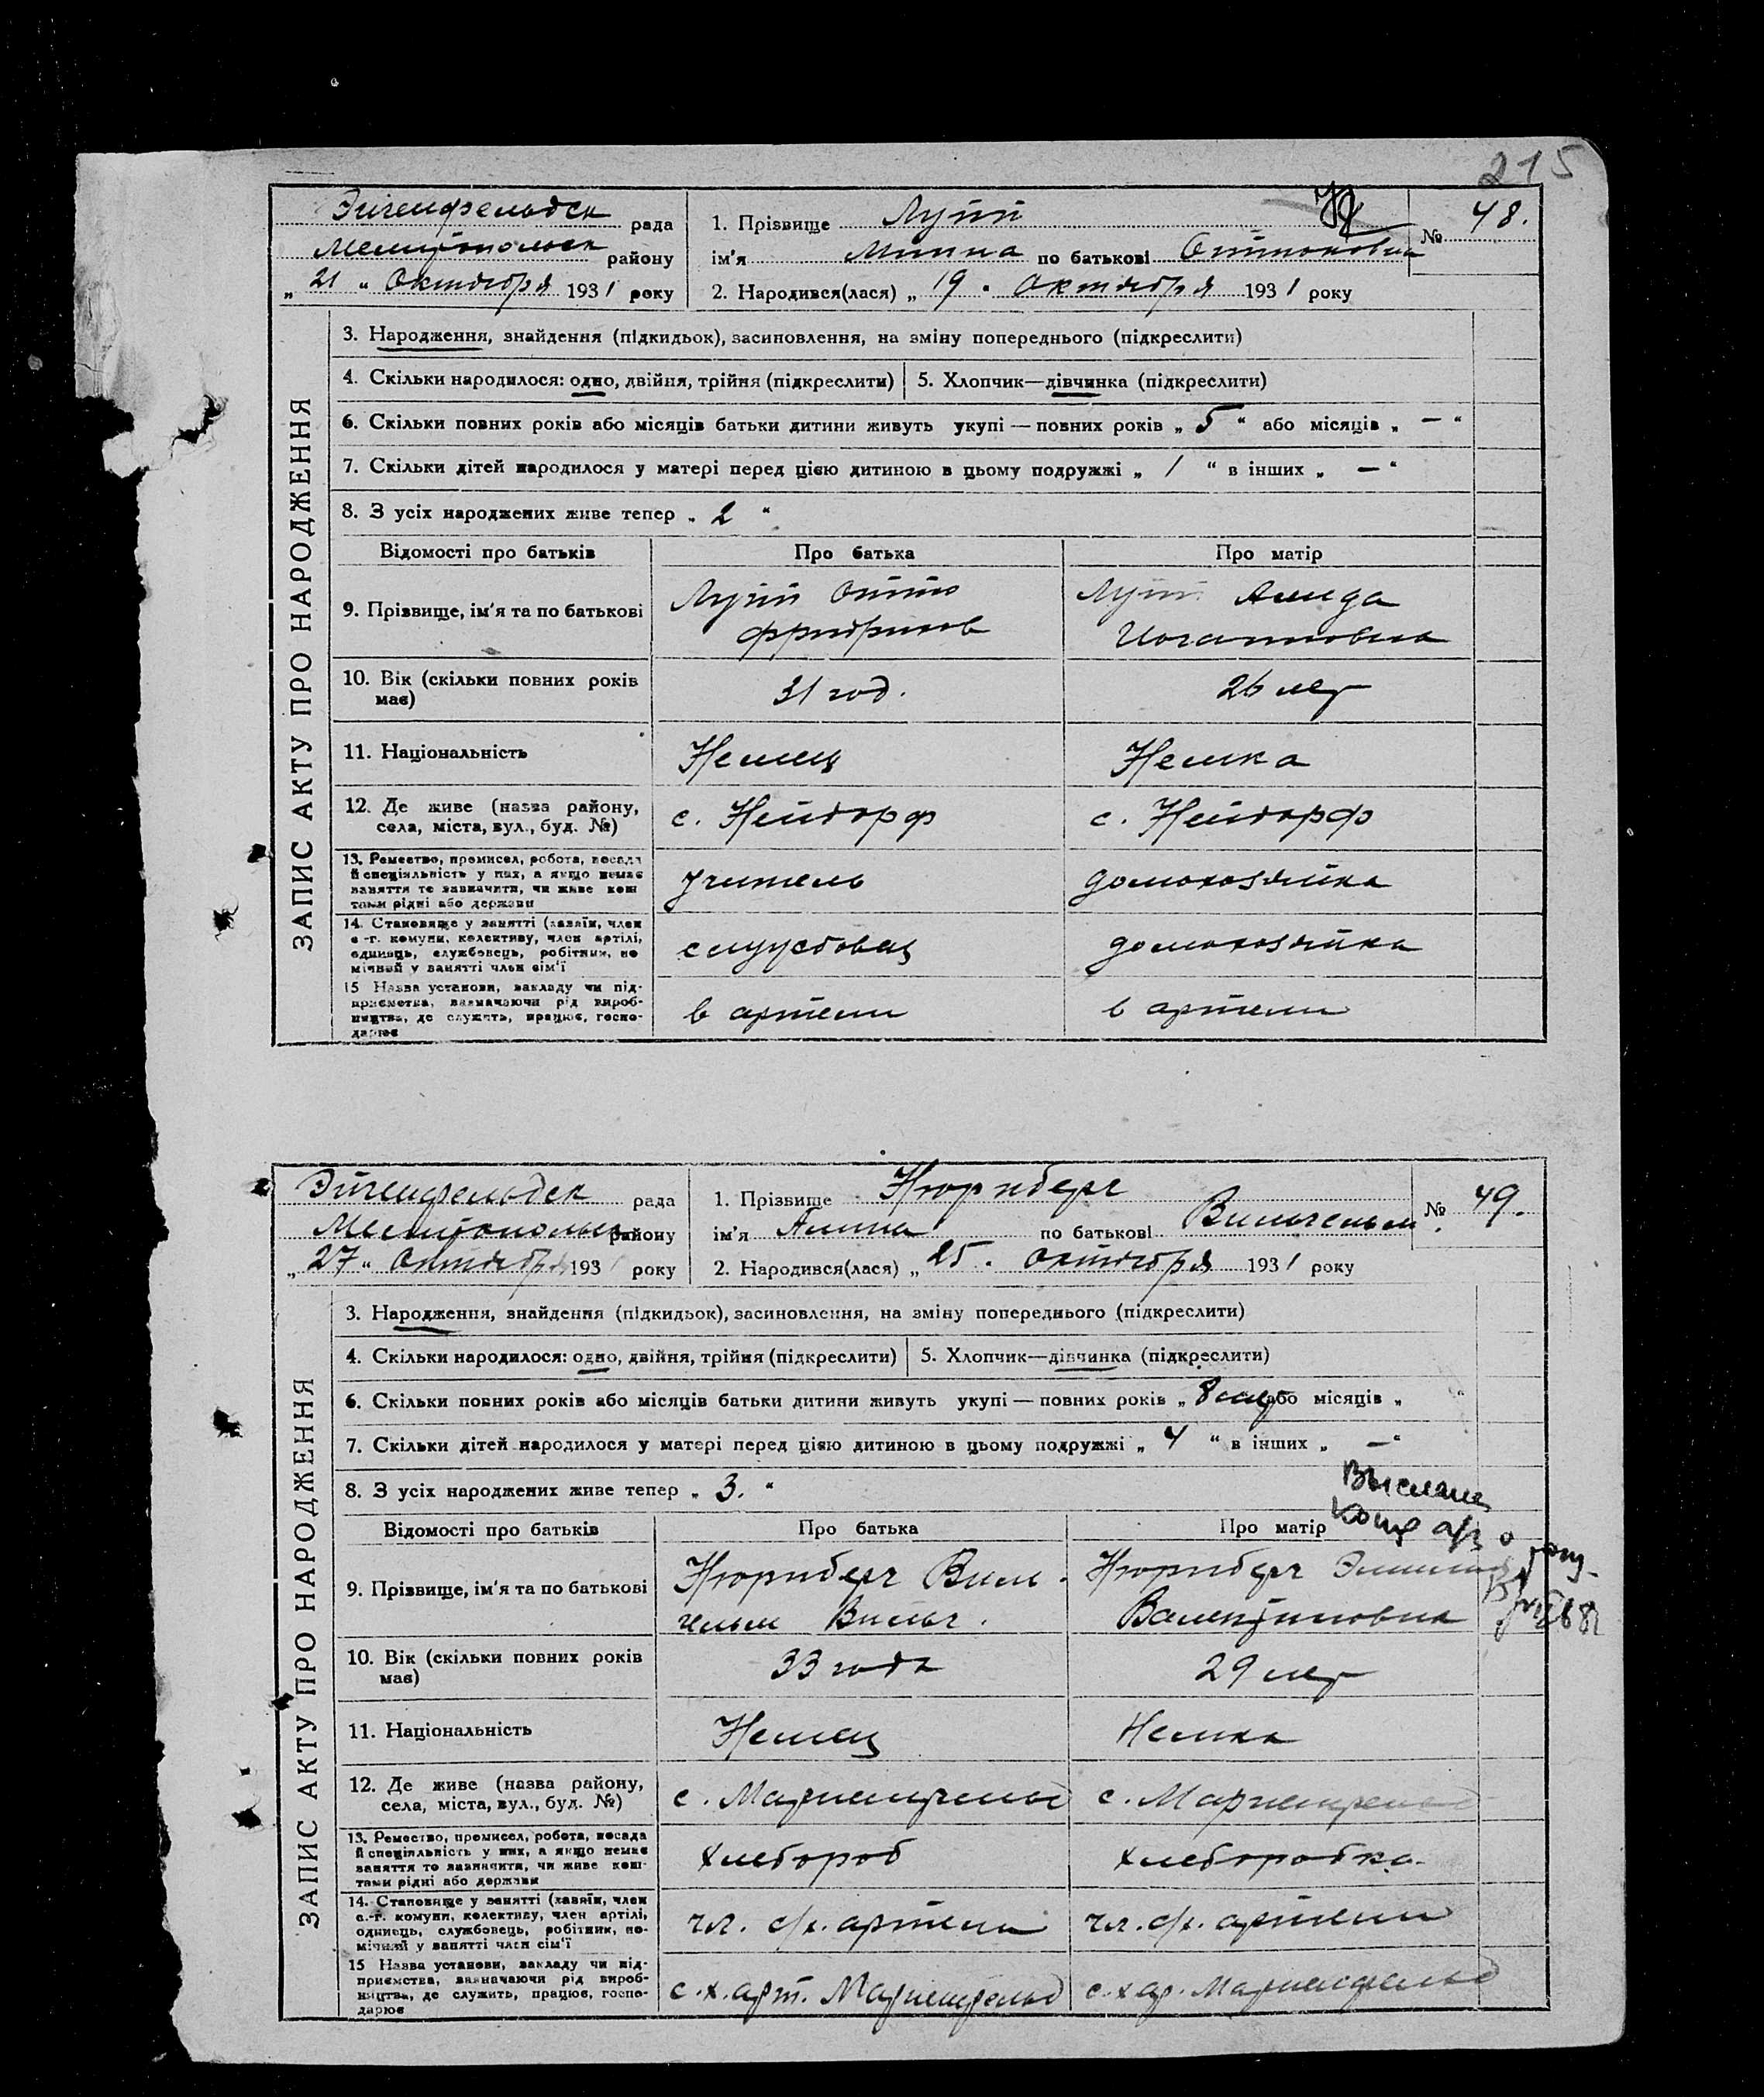 215
Эйгенфельдск рада
Мелитопольск району
„ 21 “ Октября 1931 року
1. Прізвище Лутт
ім'я Минна по батькові Оттоновна
2. Народився(лася) „ 19 “ Октября 1931 року
№ 48.
ЗАПИС АКТУ ПРО НАРОДЖЕННЯ
3. Народження, знайдення (підкидьок), засиновлення, на зміну попереднього (підкреслити)
4. Скільки народилося: одно, двійня, трійня (підкреслити) 5. Хлопчик—дівчинка (підкреслити)
6. Скільки повних років або місяців батьки дитини живуть укупі — повних років „ 5 “ або місяців „ — “
7. Скільки дітей народилося у матері перед цією дитиною в цьому подружжі „ 1 “ в інших „ — “
8. З усіх народжених живе тепер „ 2 “
Відомості про батьків Про батька Про матір
9. Прізвище, ім'я та по батькові
Лутт Отто
Фридрихов
Лутт Алида
Иогановна
10. Вік (скільки повних років
має)
31 год.
26 лет
11. Національність Немец Немка
12. Де живе (назва району,
села, міста, вул., буд. №)
с. Нейдорф
с. Нейдорф
13. Ремество, промисел, робота, посада
й спеціяльність у них, а якщо немає
заняття то зазначити, чи живе кош-
тами рідні або держави
учитель
домохозяйка
14. Становище у занятті (хазяїн, член
с.-г. комуни, колективу, член артілі,
одинець, службовець, робітник, по-
мічний у занятті член сім'ї
службовец
домохозяйка
15 Назва установи, закладу чи під-
приємства, зазначаючи рід вироб-
ництва, де служить, працює, госпо-
дарює
в артели
в артели
Эйгенфельдск рада
Мелитопольск району
„ 27 “ Октября 193 року
1. Прізвище Нюрнберг
ім'я Анна по батькові Вильгельм.
2. Народився(лася) „ 25 “ Октября 1931 року
№ 49.
ЗАПИС АКТУ ПРО НАРОДЖЕННЯ
3. Народження, знайдення (підкидьок), засиновлення, на зміну попереднього (підкреслити)
4. Скільки народилося: одно, двійня, трійня (підкреслити) 5. Хлопчик—дівчинка (підкреслити)
6. Скільки повних років або місяців батьки дитини живуть укупі — повних років „ 8 лет або місяців „ “
7. Скільки дітей народилося у матері перед цією дитиною в цьому подружжі „ 4 “ в інших „ — “
8. З усіх народжених живе тепер „ 3. “
Відомості про батьків Про батька Про матір
9. Прізвище, ім'я та по батькові
Нюрнберг Виль-
гельм Вильг.
Нюрнберг
Валентиновна
10. Вік (скільки повних років
має)
33 года
29 лет
11. Національність Немец Немка
12. Де живе (назва району,
села, міста, вул., буд. №)
с. Мариенфельд
с. Мариенфельд
13. Ремество, промисел, робота, посада
й спеціяльність у них, а якщо немає
заняття то зазначити, чи живе кош-
тами рідні або держави
хлебороб
хлеборобка.
14. Становище у занятті (хазяїн, член
с.-г. комуни, колективу, член артілі,
одинець, службовець, робітник, по-
мічний у занятті член сім'ї
чл. с/х. артели
чл. с/х. артели
15 Назва установи, закладу чи під-
приємства, зазначаючи рід вироб-
ництва, де служить, працює, госпо-
дарює
с.х. арт. Мариенфельд
с.х ар. Мариенфельд